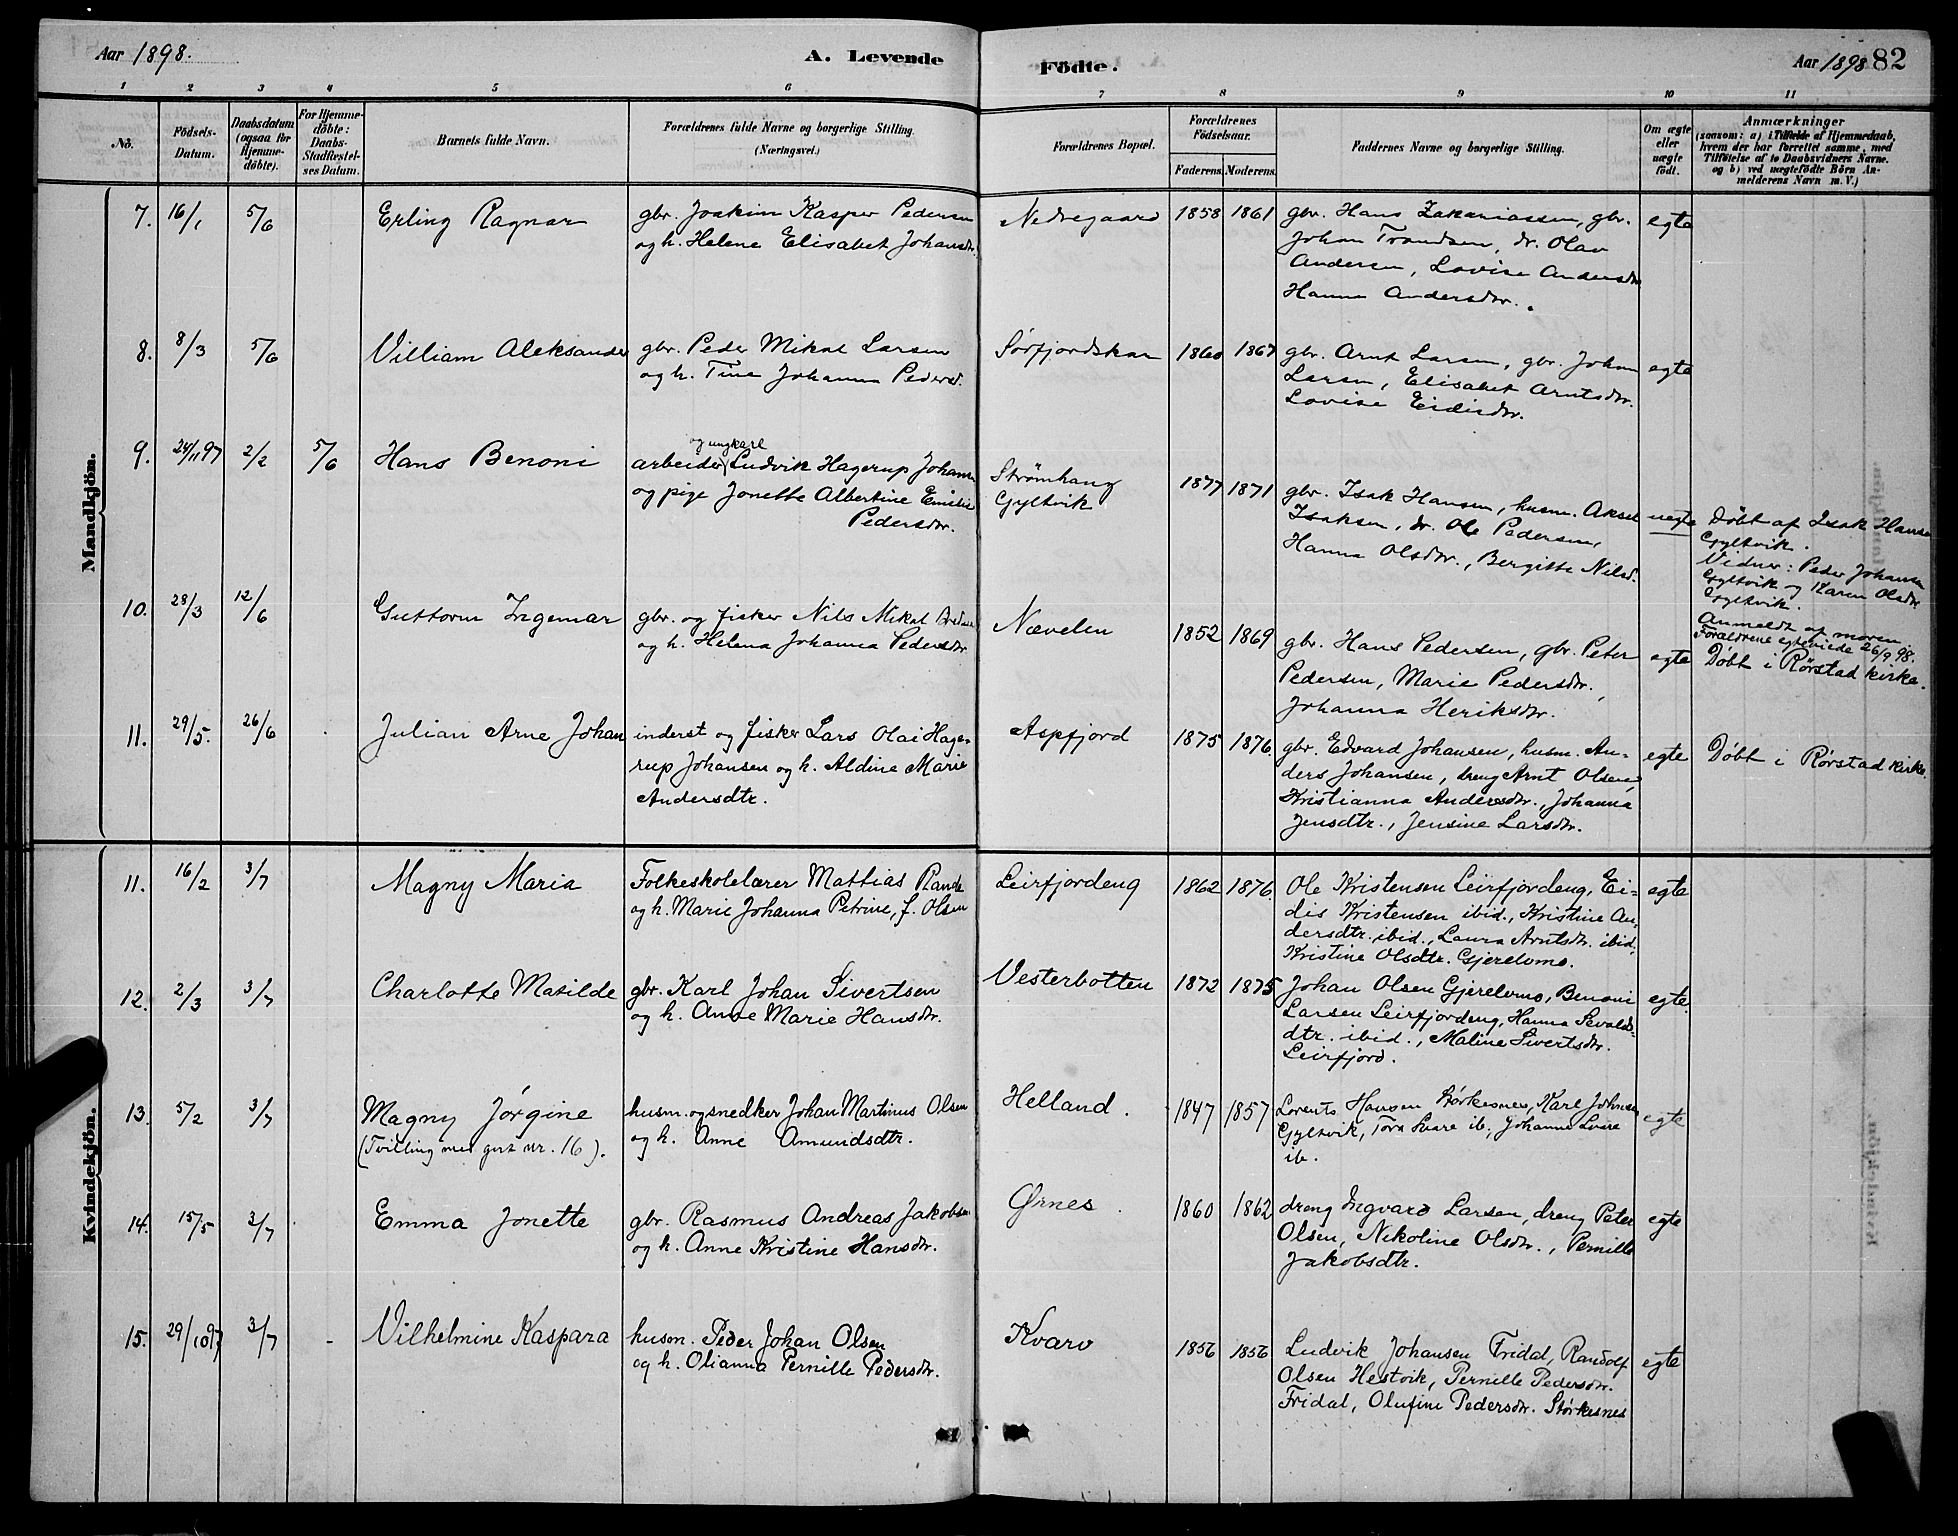 Aar 1898.
A. Levende
Födte.
Aar 1898
82
1 2 3 4 5 6 7 8 9 10 11
No.
Födsels-
Datum.
Daabsdatum
(ogsaa for
Hjemme-
döbte).
For Hjemme-
döbte:
Daabs-
Stadfæstel-
ses Datum.
Barnets fulde Navn.
Forældrenes fulde Navne og borgerlige Stilling.
(Næringsvei.)
Forældrenes Bopæl.
Forældrenes
Födselsaar.
Faderens. Moderens.
Faddernes Navne og borgerlige Stilling.
Om ægte
eller
uægte
födt.
Anmærkninger
(saasom: a) i Tilfælde af Hjemmedaab,
hvem der har forrettet samme, med
Tilføielse af to Daabsvidners Navne,
og b) ved uægtefödte Börn An-
melderens Navn m. V.)
Mandkjön.
7. 16/1 5/6 Erling Ragnar
gbr. Joakim Kasper Pedersen
og h. Helene Elisabet Johansdtr.
Nedregaard 1858 1861
gbr. Hans Zakariassen, gbr.
Johan Trondsen, dr. Olav
Andersen, Lovise Andersdtr
Hanna Andersdtr.
egte
8. 8/3 5/6 Villiam Aleksander
gbr. Peder Mikal Larsen
og h. Tina Johanna Pedersd.
Sørfjordskar 1860 1867
gbr. Arnt Larsen, gbr. Johan
Larsen, Elisabet Arntsdtr.
Lovise Eidisdtr.
egte
9. 24/11 97 2/2 5/6 Hans Benoni
og ungkarl
arbeider Ludvik Hagerup Johansen
og pige Jonette Albertine Emilie
Pedersdtr.
Strømhaug
Gyltvik
1877 1871
gbr. Isak Hansen, husm. Aksel
Isaksen, dr. Ole Pedersen,
Hanna Olsdtr., Bergitte Nilsd.
uegte
Døbt af Isak Hansen
Gyltvik.
Vidner: Peder Johansen
Gyltvik og Karen Olsdtr
Gyltvik.
Anmeldt af moren.
Forældrene egteviede 26/9 98.
10. 28/3 12/6 Guttorm Ingemar
gbr. og fisker Nils Mikal
og h. Helena Johanna Pedersdtr
Nævelen 1852 1869
gbr. Hans Pedersen, gbr. Peter
Pedersen, Marie Pedersdtr.,
Johanna Heriksdtr.
egte
Døbt i Rørstad kirke.
11. 29/5. 26/6 Julian Arne Johan
inderst og fisker Lars Olai Hage-
rup Johansen og h. Aldine Marie
Andersdtr.
Aspfjord 1875 1876.
gbr. Edvard Johansen, husm. An-
ders Johansen, dreng Arnt Olsen,
Kristianna Andersdtr., Johanna
Jensdtr., Jensine Larsdtr.
egte
Døbt i Rørstad kirke.
Kvindekjön.
11. 16/2 3/7 Magny Maria
Folkeskolelærer Mattias Rande
og h. Marie Johanna Petrine, f. Olsen
Leirfjordeng 1862 1876.
Ole Kristensen Leirfjordeng, Ei-
dis Kristensen ibid., Kristine An-
dersdtr. ibid., Laura Arntsdtr. ibid.
Kristine Olsdtr. Gjerelvmo.
egte
12. 2/3 3/7 Charlotte Matilde
gbr. Karl Johan Sivertsen
og h. Anne Marie Hansdtr.
Vesterbotten 1872 1875
Johan Olsen Gjerelvmo, Benoni
Larsen Leirfjordeng, Hanna Sevalds-
dtr. ibid., Maline Sivertsdtr.
Leirfjord.
egte.
13. 5/2 3/7 Magny Jørgine
(Tvilling med gut nr. 16).
husm. og snedker Johan Martinus Olsen
og h. Anne Amundsdtr.
Helland. 1847 1857
Lorents Hansen Størkesnes, Karl Johnsen
Gyltvik, Tora Svare ib., Johanna
ib.
egte
14. 15/5 3/7 Emma Jonette
gbr. Rasmus Andreas Jakobsen
og h. Anne Kristine Hansdtr.
Ørnes. 1860 1862
dreng Ingvard Larsen, dreng Peter
Olsen, Nikoline Olsdtr., Pernille
Jakobsdtr.
egte
15. 29/10 97 3/7 Vilhelmine Kaspara
husm. Peder Johan Olsen
og h. Olianna Pernille Pedersdtr.
Kvarv 1856 1856
Ludvik Johansen Fridal, Randolf
Olsen Hestvik, Pernille Pedersdtr.
Fridal, Olufine Pedersdtr. Størkesnes
egte